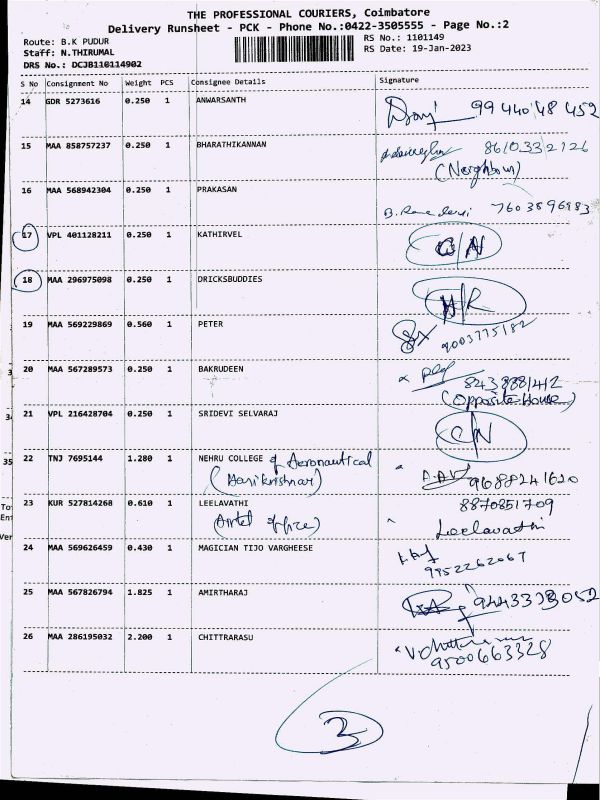 THE PROFESSIONAL COURIERS, Coimbatore
Delivery Runsheet - PCK - Phone No.:0422-3505555 - Page No.:2
Route: B.K PUDUR
RS No.: 1101149
Staff: N.THIRUMAL
RS Date: 19-Jan-2023
DRS No.: DCJB110114902
S No Consignment No Weight PCS Consignee Details Signature
14 GDR 5273616 0.250 1 ANWARSANTH 99 440 48 452
15 MAA 858757237 0.250 1 BHARATHIKANNAN 8610332126
(Neighbour)
16 MAA 568942304 0.250 1 PRAKASAN 7603896983
17 VPL 401128211 0.250 1 KATHIRVEL C/N
18 MAA 296975098 0.250 1 DRICKSBUDDIES
19 MAA 569229869 0.560 1 PETER 9003775182
20 MAA 567289573 0.250 1 BAKRUDEEN 8438881412
(Opposite House)
21 VPL 216428704 0.250 1 SRIDEVI SELVARAJ C/N
22 TNJ 7695144 1.280 1 NEHRU COLLEGE of Aeronautical 9688241620
(Harikrishnan)
23 KUR 527814268 0.610 1 LEELAVATHI 8870851709
(Airtel office) Leelavathi
24 MAA 569626459 0.430 1 MAGICIAN TIJO VARGHEESE
9952262067
25 MAA 567826794 1.825 1 AMIRTHARAJ 9443373052
26 MAA 286195032 2.200 1 CHITTRARASU
9500663328
3